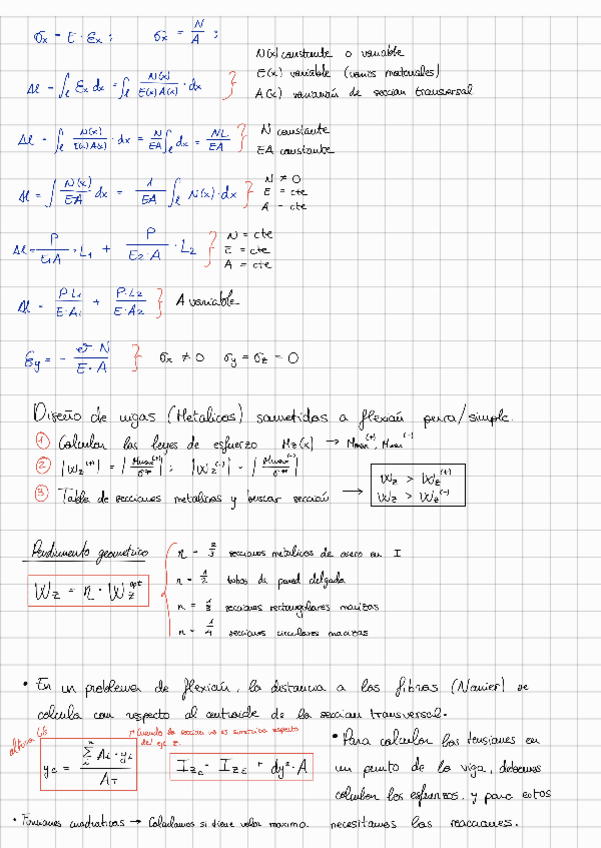 σx = E · εx ;   σx = N/A ;
N(x) constante o variable
Δl = ∫ℓ εx dx = ∫ℓ N(x)/(E(x)A(x)) · dx } E(x) variable (varios materiales)
A(x) variación de sección transversal
Δl = ∫ℓ N(x)/(E(x)A(x)) · dx = N/EA ∫ℓ dx = NL/EA } N constante
EA constante
Δl = ∫ N(x)/EA dx = 1/EA ∫ℓ N(x)·dx } N ≠ 0
E = cte
A = cte
Δl = P/(E1A) · L1 + P/(E2·A) · L2 } N = cte
E = cte
A = cte
Δl = P·L1/(E·A1) + P·L2/(E·A2) } A variable
εy = - N/(E·A) } σx ≠ 0   σy = σz = 0
Diseño de vigas (Metálicas) sometidas a flexión pura/simple.
1 Calcular las leyes de esfuerzo Mz(x) → Mmax(+), Mmax(-)
2 |Wz(+)| = |Mmax(+)/σ| ; |Wz(-)| = |Mmax(-)/σ|
3 Tabla de secciones metálicas y buscar sección → Wz > Wz(+)
Wz > Wz(-)
Rendimiento geométrico { η = 2/3 secciones metálicas de acero en I
Wz = η · Wz opt
η = 1/2 tubos de pared delgada
η = 1/3 secciones rectangulares macizas
η = 1/4 secciones circulares macizas
• En un problema de flexión, la distancia a las fibras (Navier) se
calcula con respecto al centroide de la sección transversal.
altura
Cuando la sección no es simétrica respecto
del eje z.
yc = Σ Ai · yi / AT
Izc = Izc + dy² · A
• Para calcular las tensiones en
un punto de la viga, debemos
calcular los esfuerzos, y para estos
necesitamos las reacciones.
• Tensiones cuadráticas → Calculamos si tiene valor máximo.